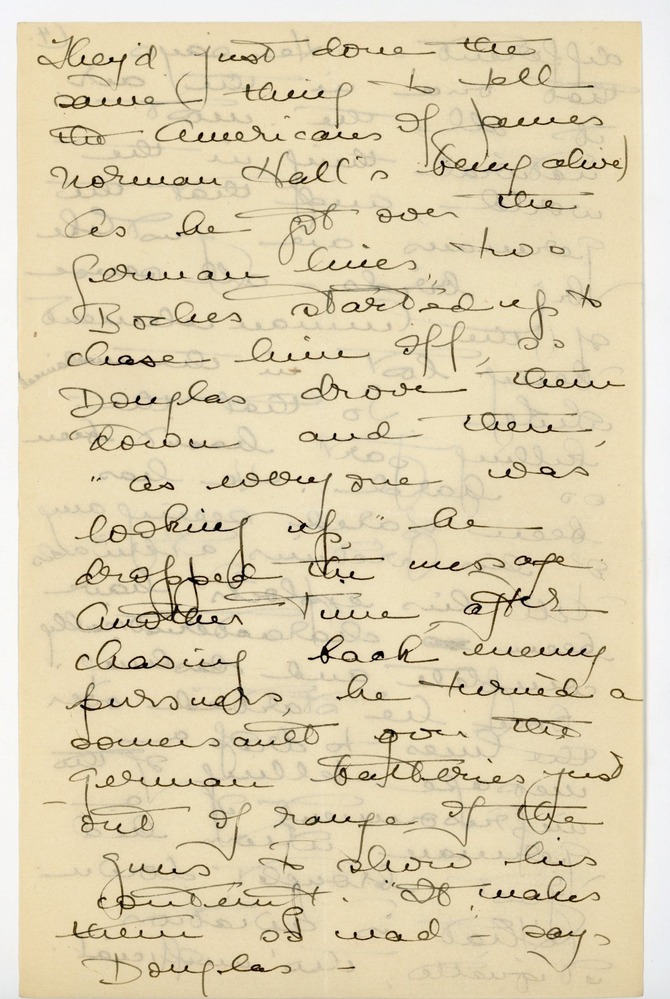 They'd just done the
same (thing to tell
the Americans of James
Norman Hall's being alive)
As he got over the
German lines, two
Boches started up to
chase him off, so
Douglas drove them
down and then,
"as everyone was
looking up," he
dropped the message.
Another time, after
chasing back enemy
pursuers, he turned a
somersault over the
German batteries just
out of range of the
guns to show his
contempt. "It makes
them so mad" - says
Douglas -